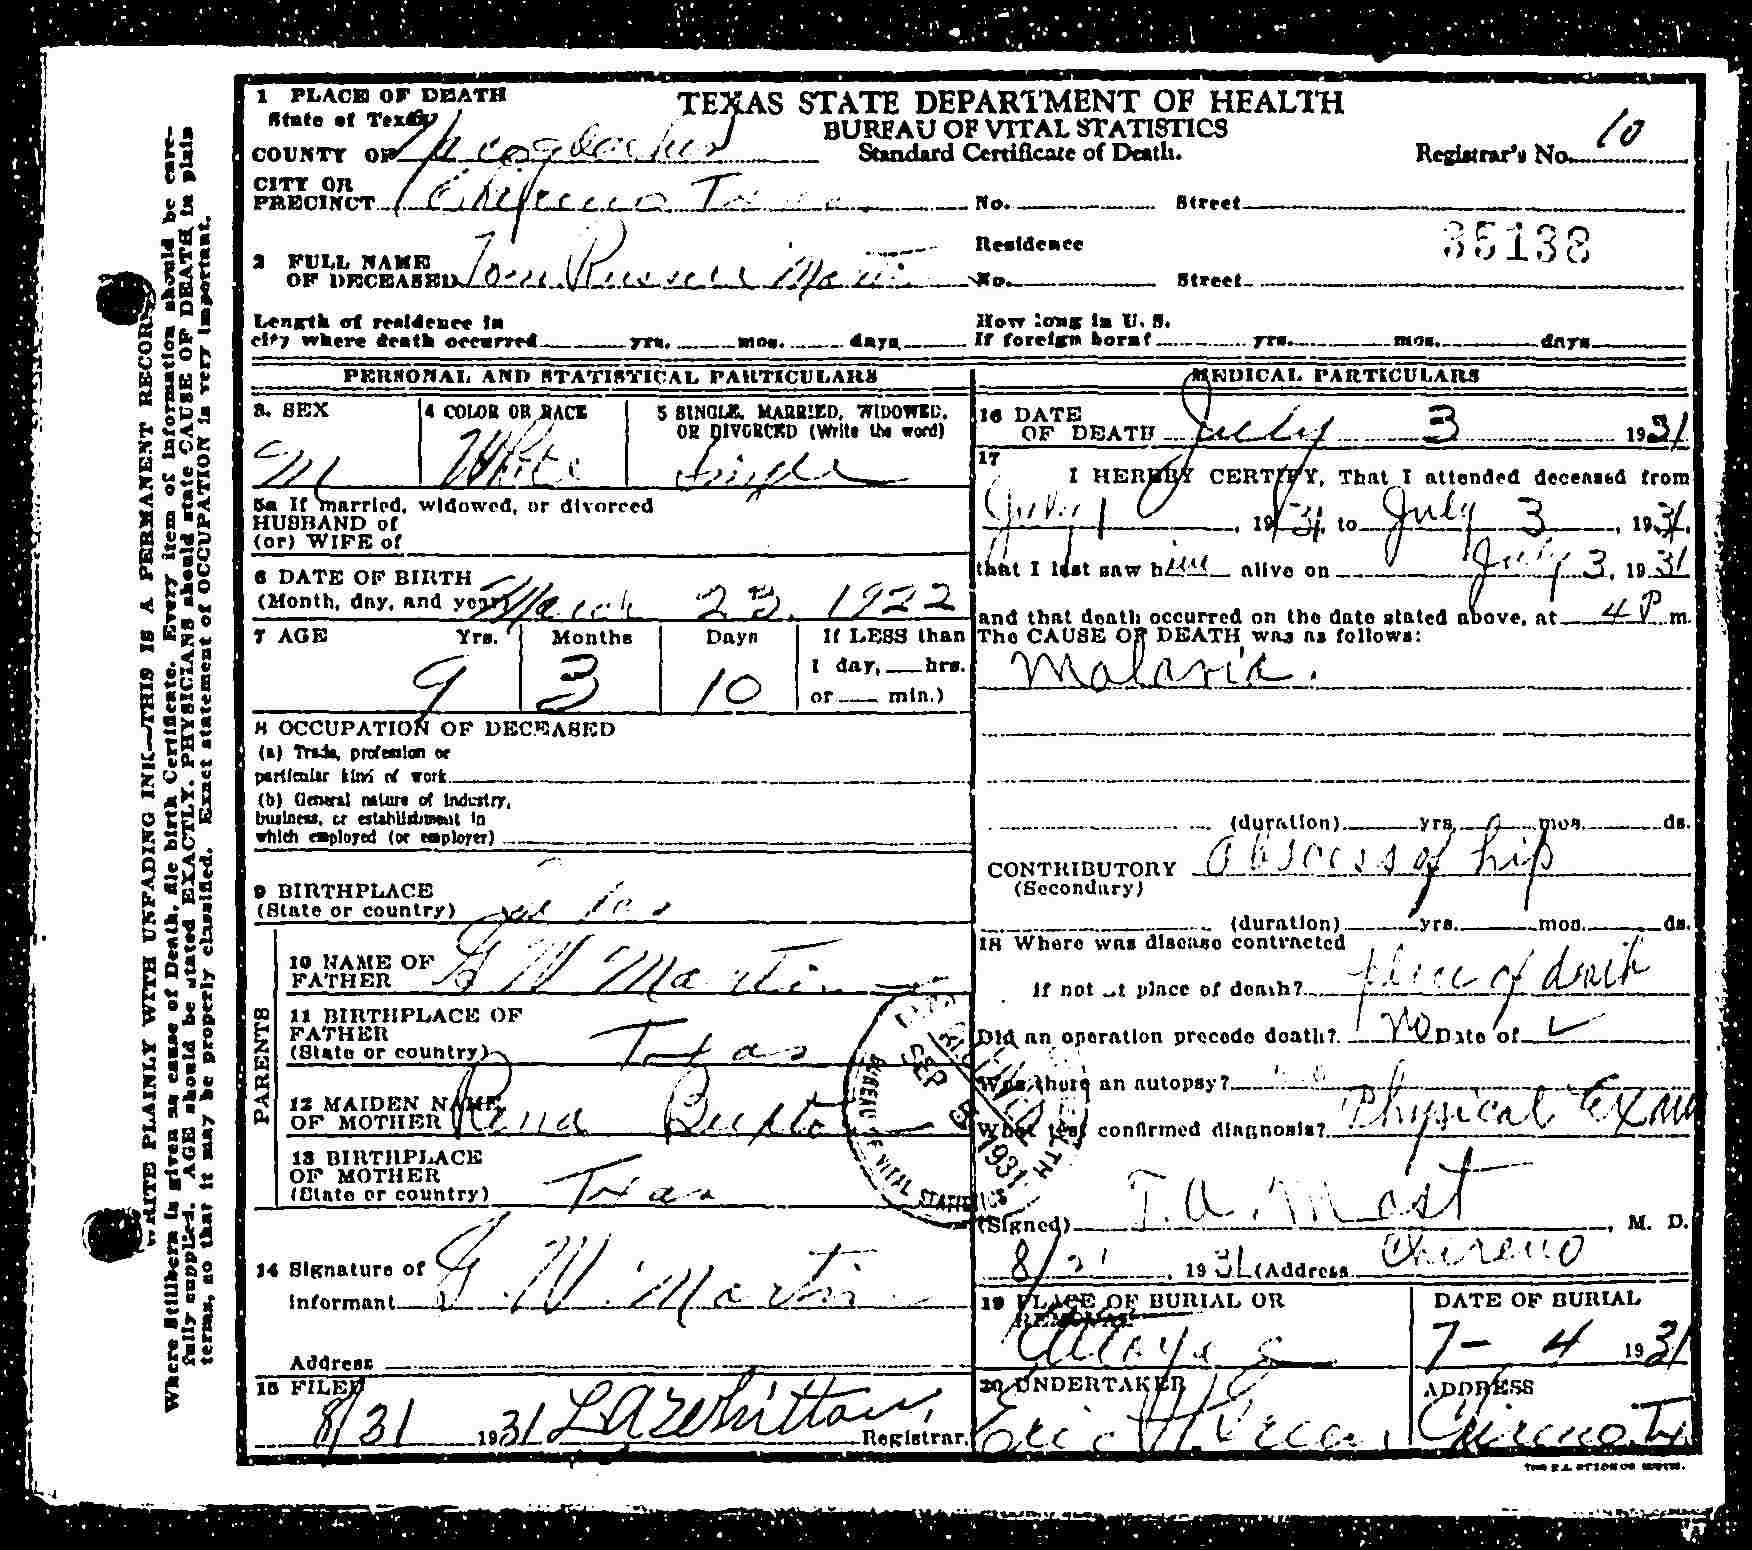 1 PLACE OF DEATH
State of Texas
COUNTY OF Nacogdoches
CITY OR
PRECINCT Chireno Texas
TEXAS STATE DEPARTMENT OF HEALTH
BUREAU OF VITAL STATISTICS
Standard Certificate of Death.
Registrar's No. 10
No. Street
2 FULL NAME
OF DECEASED Tom Russell Martin
Residence
35138
No. Street
Length of residence in
city where death occurred yrs. mos. days
How long in U. S.
If foreign born? yrs. mos. days
PERSONAL AND STATISTICAL PARTICULARS
3. SEX
M
4 COLOR OR RACE
White
5 SINGLE, MARRIED, WIDOWED,
OR DIVORCED (Write the word)
Single
5a If married, widowed, or divorced
HUSBAND of
(or) WIFE of
6 DATE OF BIRTH
(Month, day, and year) March 23, 1922
7 AGE Yrs. Months Days If LESS than
1 day, hrs.
9 3 10 or min.)
8 OCCUPATION OF DECEASED
(a) Trade, profession or
particular kind of work
(b) General nature of industry,
business, or establishment in
which employed (or employer)
9 BIRTHPLACE
(State or country)
PARENTS
10 NAME OF
FATHER G W Martin
11 BIRTHPLACE OF
FATHER
(State or country) Texas
12 MAIDEN NAME
OF MOTHER Rena
13 BIRTHPLACE
OF MOTHER
(State or country) Texas
14 Signature of
Informant G. W. Martin
Address
15 FILED
8/31 1931 L A Whitton,
Registrar.
MEDICAL PARTICULARS
16 DATE
OF DEATH July 3 1931
17
I HEREBY CERTIFY, That I attended deceased from
July 1, 1931, to July 3, 1931,
that I last saw him alive on July 3, 1931
and that death occurred on the date stated above, at 4 P m.
The CAUSE OF DEATH was as follows:
Malaria.
(duration) yrs. mos. ds.
CONTRIBUTORY Abscess of hip
(Secondary)
(duration) yrs. mos. ds.
18 Where was disease contracted
if not at place of death? place of death
Did an operation precede death? No Date of ✓
Was there an autopsy?
What test confirmed diagnosis? Physical Exam
(Signed) T. A. Mast, M. D.
8/31, 1931 (Address Chireno
19 PLACE OF BURIAL OR
REMOVAL
DATE OF BURIAL
7-4 1931
20 UNDERTAKER
Eric
ADDRESS
Chireno, Tx
SEP 5 1931
BUREAU OF VITAL STATISTICS
WRITE PLAINLY WITH UNFADING INK—THIS IS A PERMANENT RECORD
Where Stillborn is given as cause of Death, file birth Certificate. Every item of information should be care-
fully supplied. AGE should be stated EXACTLY. PHYSICIANS should state CAUSE OF DEATH in plain
terms, so that it may be properly classified. Exact statement of OCCUPATION is very important.